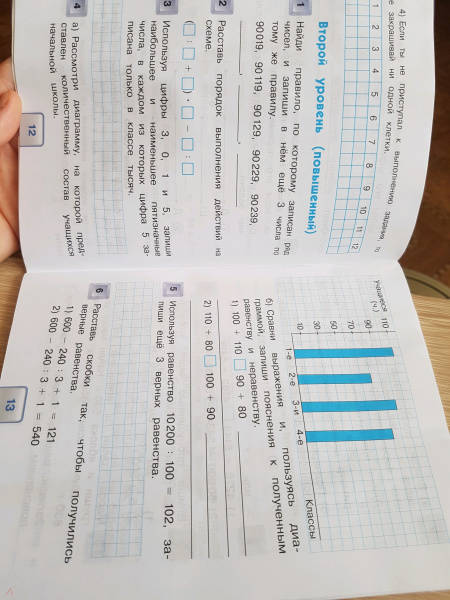 4) Если ты не приступал к выполнению задания, то
не закрашивай ни одной клетки.
1 2 3 4 5 6 7 8 9 10 11 12
Второй уровень (повышенный)
1 Найди правило, по которому записан ряд
чисел, и запиши в нём ещё 3 числа по
тому же правилу.
90 019, 90 119, 90 129, 90 229, 90 239,
2 Расставь порядок выполнения действий на
схеме.
(□ · □ + □) · □ − □ : □
3 Используя цифры 3, 0, 1 и 5, запиши
наибольшее и наименьшее пятизначные
числа, в каждом из которых цифра 5 за-
писана только в классе тысяч.
4 а) Рассмотри диаграмму, на которой пред-
ставлен количественный состав учащихся
начальной школы.
12
учащиеся
(ч.)
110
90
70
50
30
10
1-е 2-е 3-и 4-е
Классы
б) Сравни выражения и, пользуясь диа-
граммой, запиши пояснения к полученным
равенству и неравенству.
1) 100 + 110 □ 90 + 80
2) 110 + 80 □ 100 + 90
5 Используя равенство 10 200 : 100 = 102, за-
пиши ещё 3 верных равенства.
6 Расставь скобки так, чтобы получились
верные равенства.
1) 600 − 240 : 3 + 1 = 121
2) 600 − 240 : 3 + 1 = 540
13